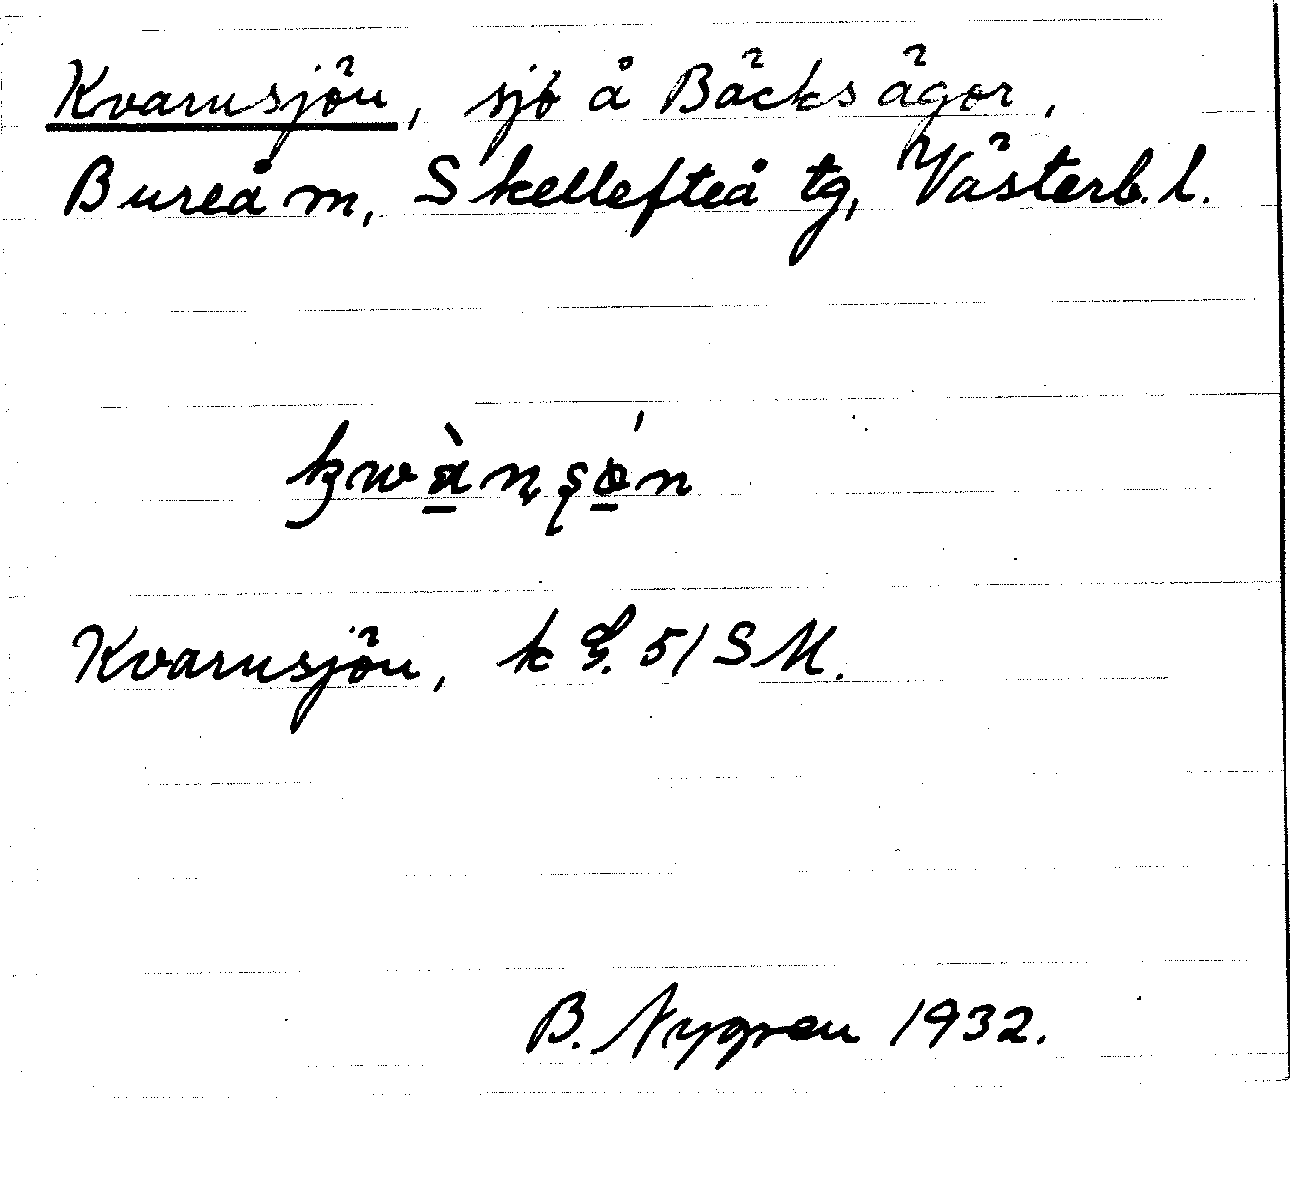 Kvarnsjön, sjö å Bäcks ägor,
Bureå m, Skellefteå tg, Västerb. l.
Kvarnsjön, k 51 SM.
B. Nygren 1932.